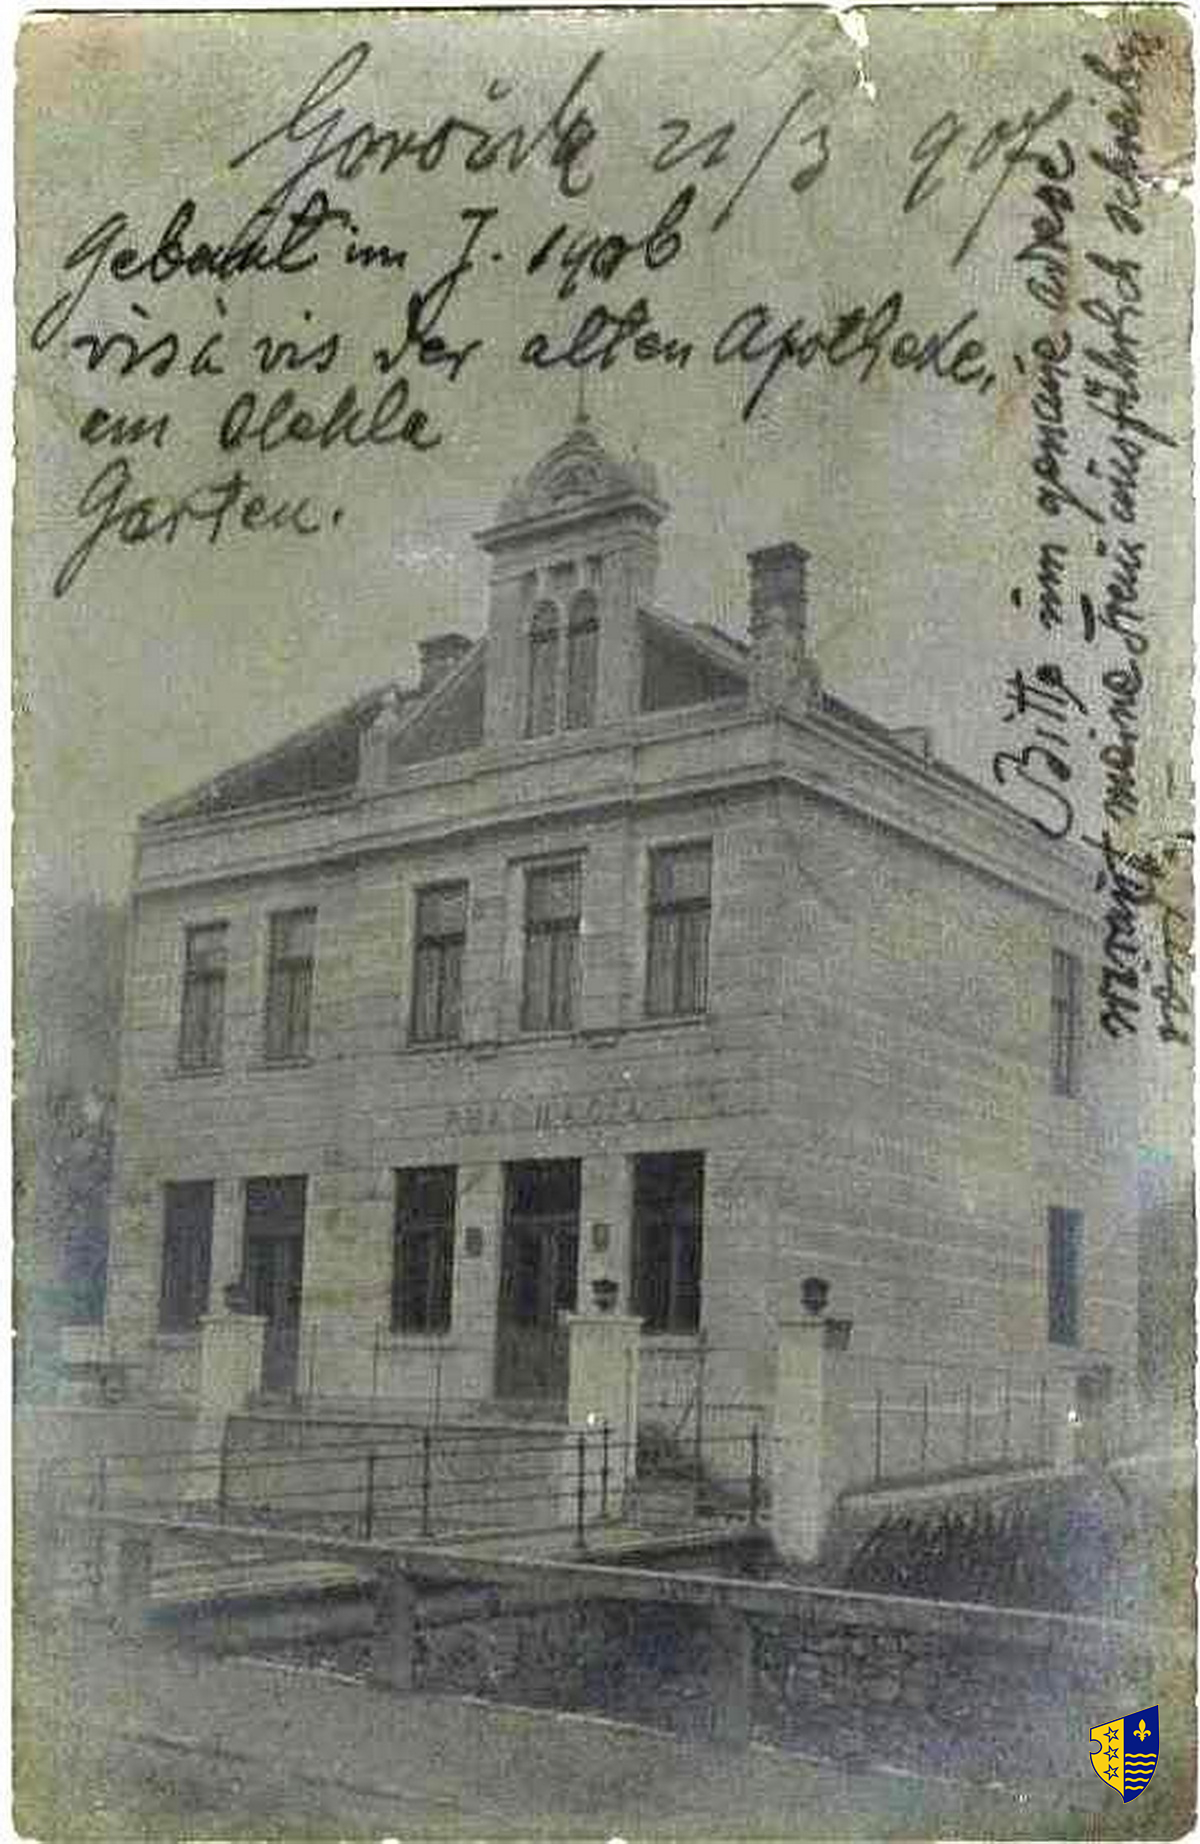 Goražda 21/3 907
Gebaut im J. 1906
visà vis der alten Apotheke,
am Blahla
Garten.
Bitte um genaue adrese
worauf meine Frau ausführlich schreiben